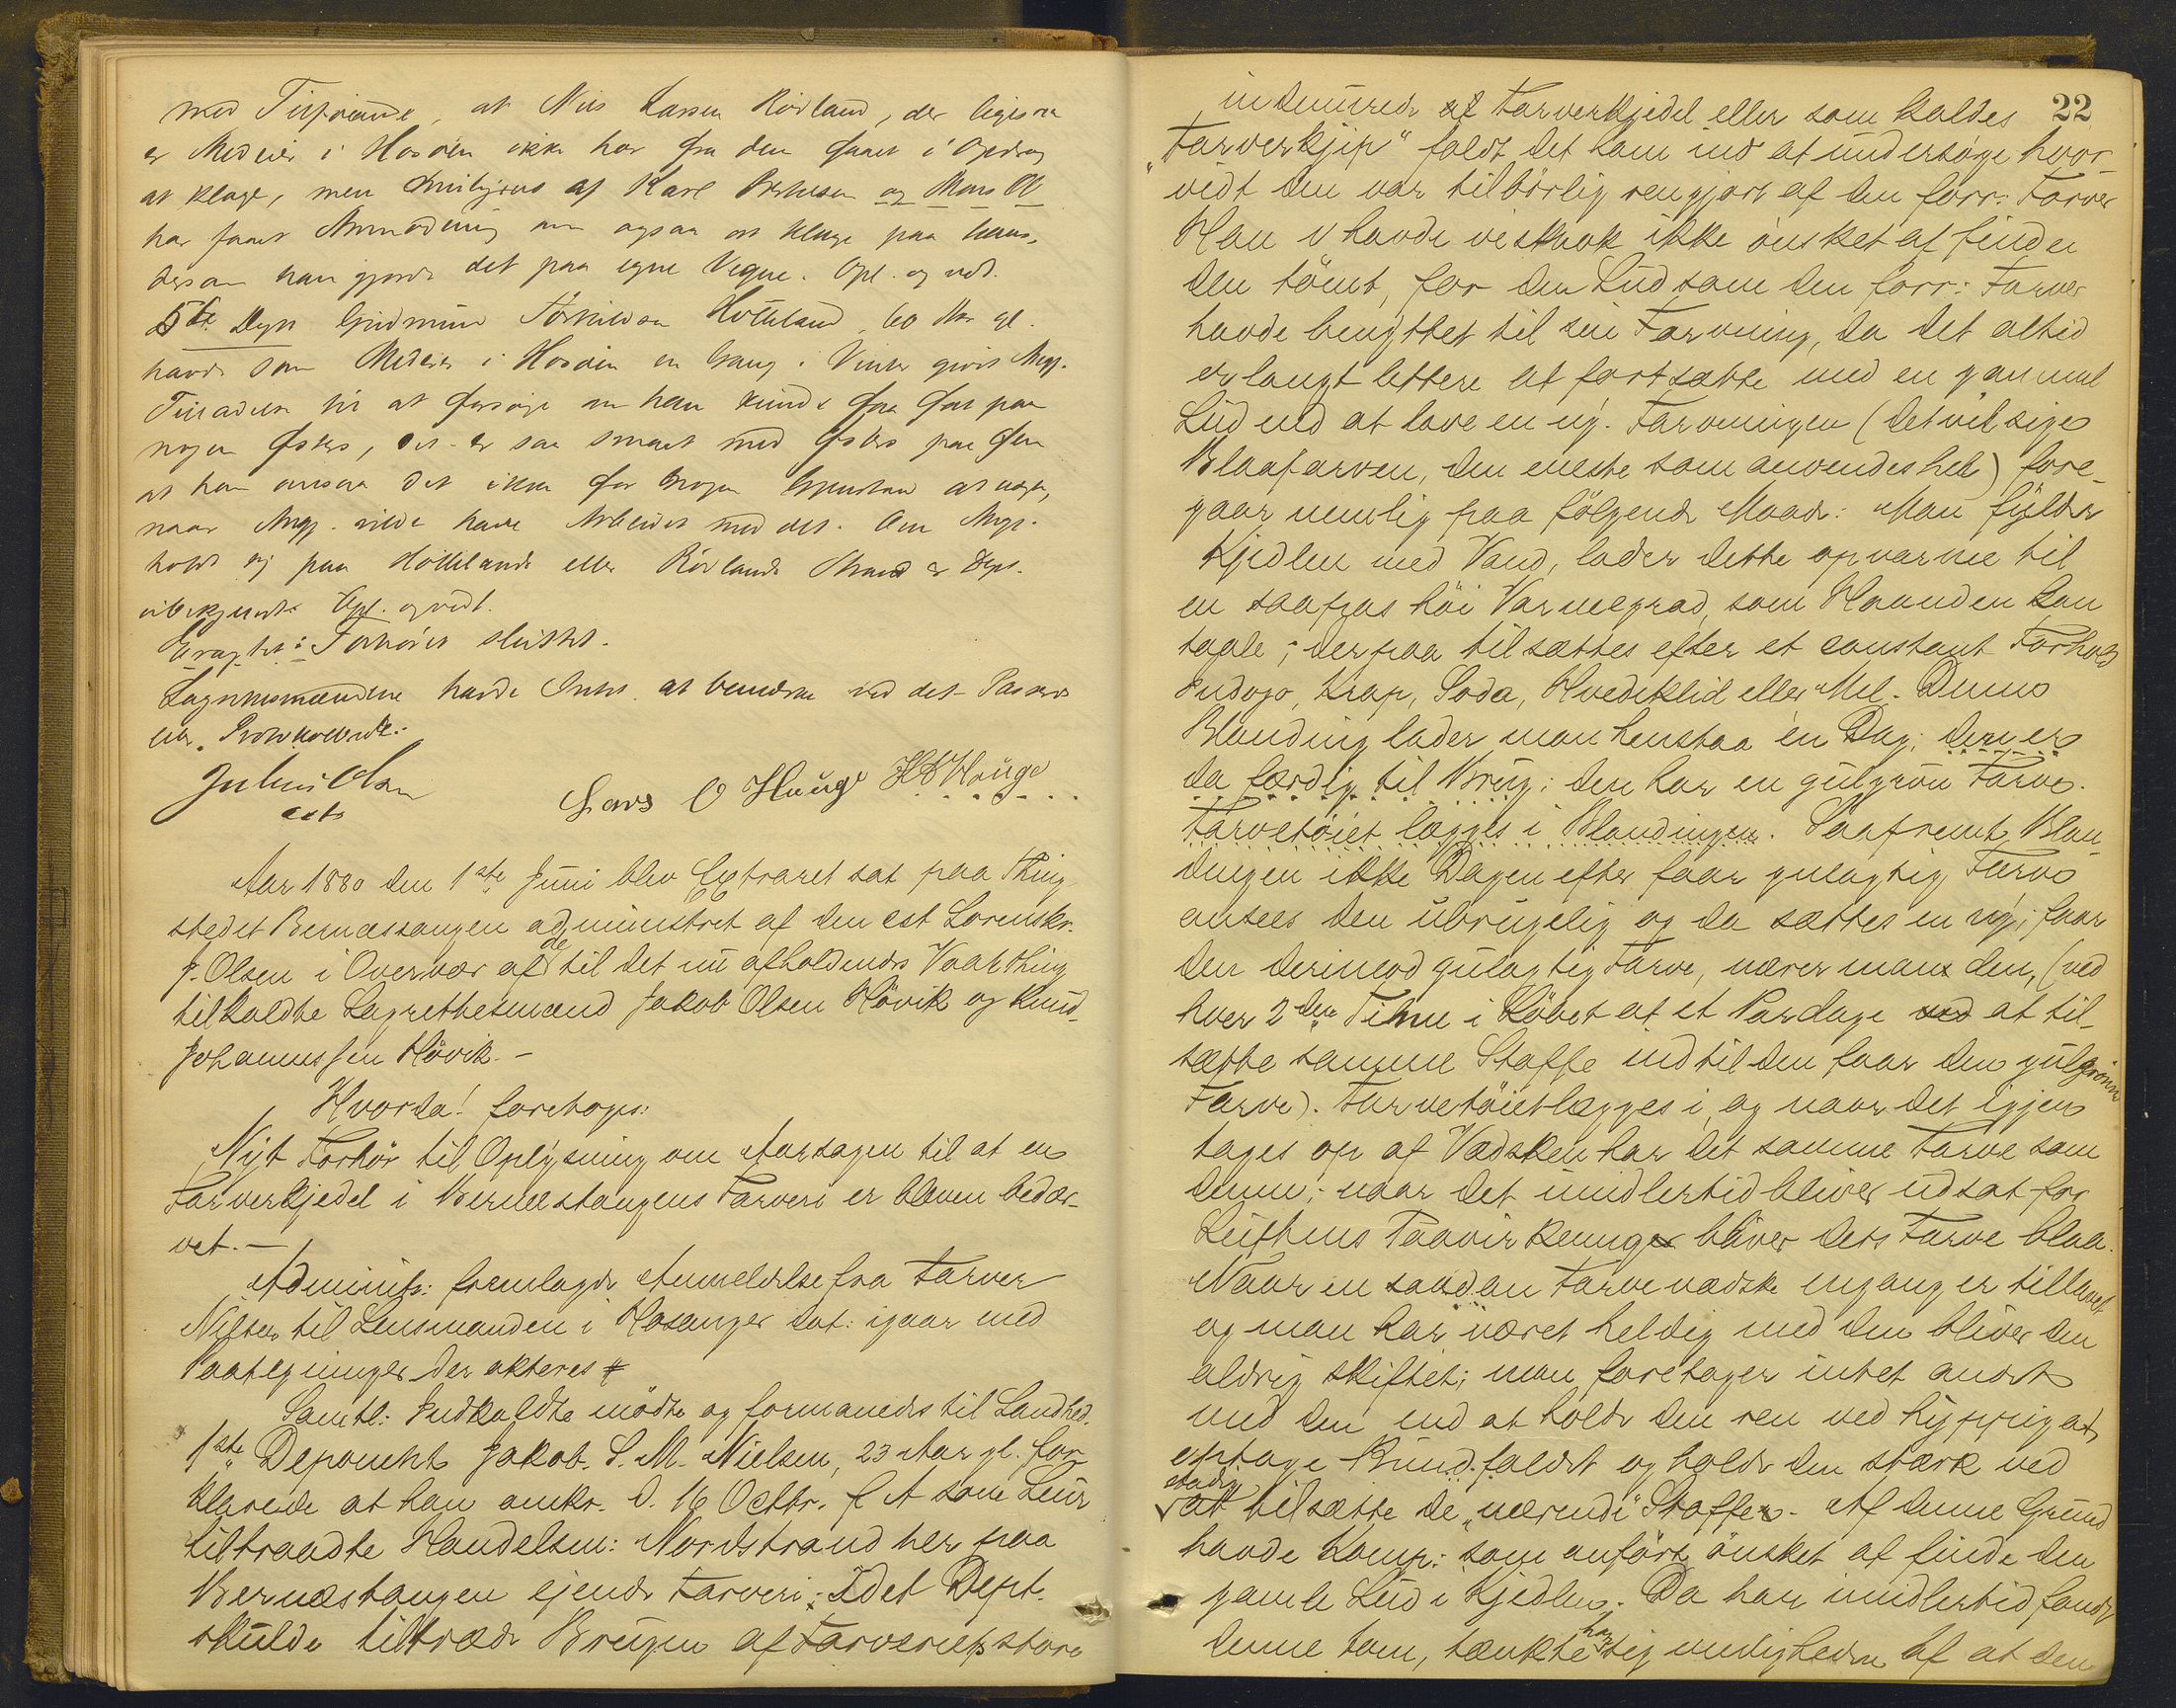 med Tilføiende, at Nils Larsen Rørland, der ligesaa
er Medeier i Hosøien ikke har fra den faaet i Opdrag
at klage, men af Karl og Mons
har faaet Anmodning om ogsaa at klage paa hans,
dersom han gjorde det paa egne Vegne. Opl. og vedt.
5te Dept Gudmund Hotteland, 60 Aar gl.
havde som Medeier i Hosøien en Gang i Vinter givet Angj.
Tilladelse til at forsøge om han kunde faa paa
nogen Østers, det er saa smaat med Østers paa
at han ansaa det ikke for nogen Gjenstand at nægte,
naar Angj. vilde have Arbeidet med det. Om Angj.
holdt sig paa Hottelands eller Rørlands Strand er Dept.
ubekjendt. Opl. og vedt.
Eragtet: Forhøret sluttet.
Lagrettesmændene havde Intet at bemærke ved det Passerede
Protokollerede.
Julius Olsen
cst
Lars O Hauge H Hauge
Aar 1880 den 1ste Juni blev Extraret sat paa Thing
stedet Bernæstangen administret af den cst Sorenskr.
J. Olsen i Overvær af de til det nu afholdendes Vaarthing
tilkaldte Lagrettesmænd Jakob Olsen Hövik og Knud
Johannessen Hövik. —
Hvorda! foretoges:
Nyt Forhör til Oplysning om Aarsagen til at en
Farverkjedel i Bernæstangens Farveri er bleven bedær-
vet. —
Administr: fremlagde Anmeldelse fra Farver
Nilsen til Lensmanden i Hosanger dat: igaar med
Paategninger der akteres
Samtl: Indkaldte mödte og formanedes til Sandhed.
1ste Deponent Jakob S. M. Nielsen, 23 Aar gl. for-
klarede at han omkr. D. 16 Octbr. f A som Leier
tiltraadte Handelsm: Nordstrand her paa
Bernæstangen ejende Farveri; Idet Dept.
skulde tiltræde Brugen af Farveriets store
22
indemurede Farverkjedel eller som kaldes
„Farverkjip" faldt det ham ind at undersöge hvor-
vidt den var tilbörlig rengjort af den forr: Farver
Han havde vistnok ikke önsket at finde
den tömt, for den Lud som den forr: Farver
havde benyttet til sin Farvning, da det altid
er langt lettere at fortsætte med en gammel
Lud end at lave en ny. Farvningen (det vil sige
Blaafarven, den eneste som anvendes her) fore-
gaar nemlig paa fölgende Maade: Man fylder
Kjedlen med Vand, lader dette opvarme til
en saapas höi Varmegrad, som Haanden kan
taale; derpaa tilsættes efter et constant Forhold
Indogo, Krap, Soda, Hvedeklid eller Mel. Denne
Blanding lader man henstaa en Dag; den er
da færdig til Brug; den har en gulgrön Farve.
Farvetöiet lægges i Blandingen. Saafremt Blan-
dingen ikke Dagen efter faar gulagtig Farve
ansees den ubrugelig og da sættes en ny; faar
den derimod gulagtig Farve, nærer man den, (ved
hver 2den Time i Löbet af et Pardage ved at til-
sætte samme Stoffe indtil den faar den gulgrönne
Farve). Farvetöiet lægges i, og naar det igjen
tages op af Vædsken har det samme Farve som
denne; naar det imidlertid bliver udsat for
Luftens Paavirkning bliver dets Farve blaa.
Naar en saadan Farvevædske engang er tillavet
og man har været heldig med den bliver den
aldrig skiftet; man foretager intet andet
med den end at holde den ren ved hyppig at
optage Bundfaldet og holde den stærk ved
stadig at tilsætte de „nærende" Stoffer. Af denne Grund
havde Komp: som anfört önsket at finde den
gamle Lud i Kjedlen. Da han imidlertid fandt
denne tom, tænkte han sig muligheden af at den